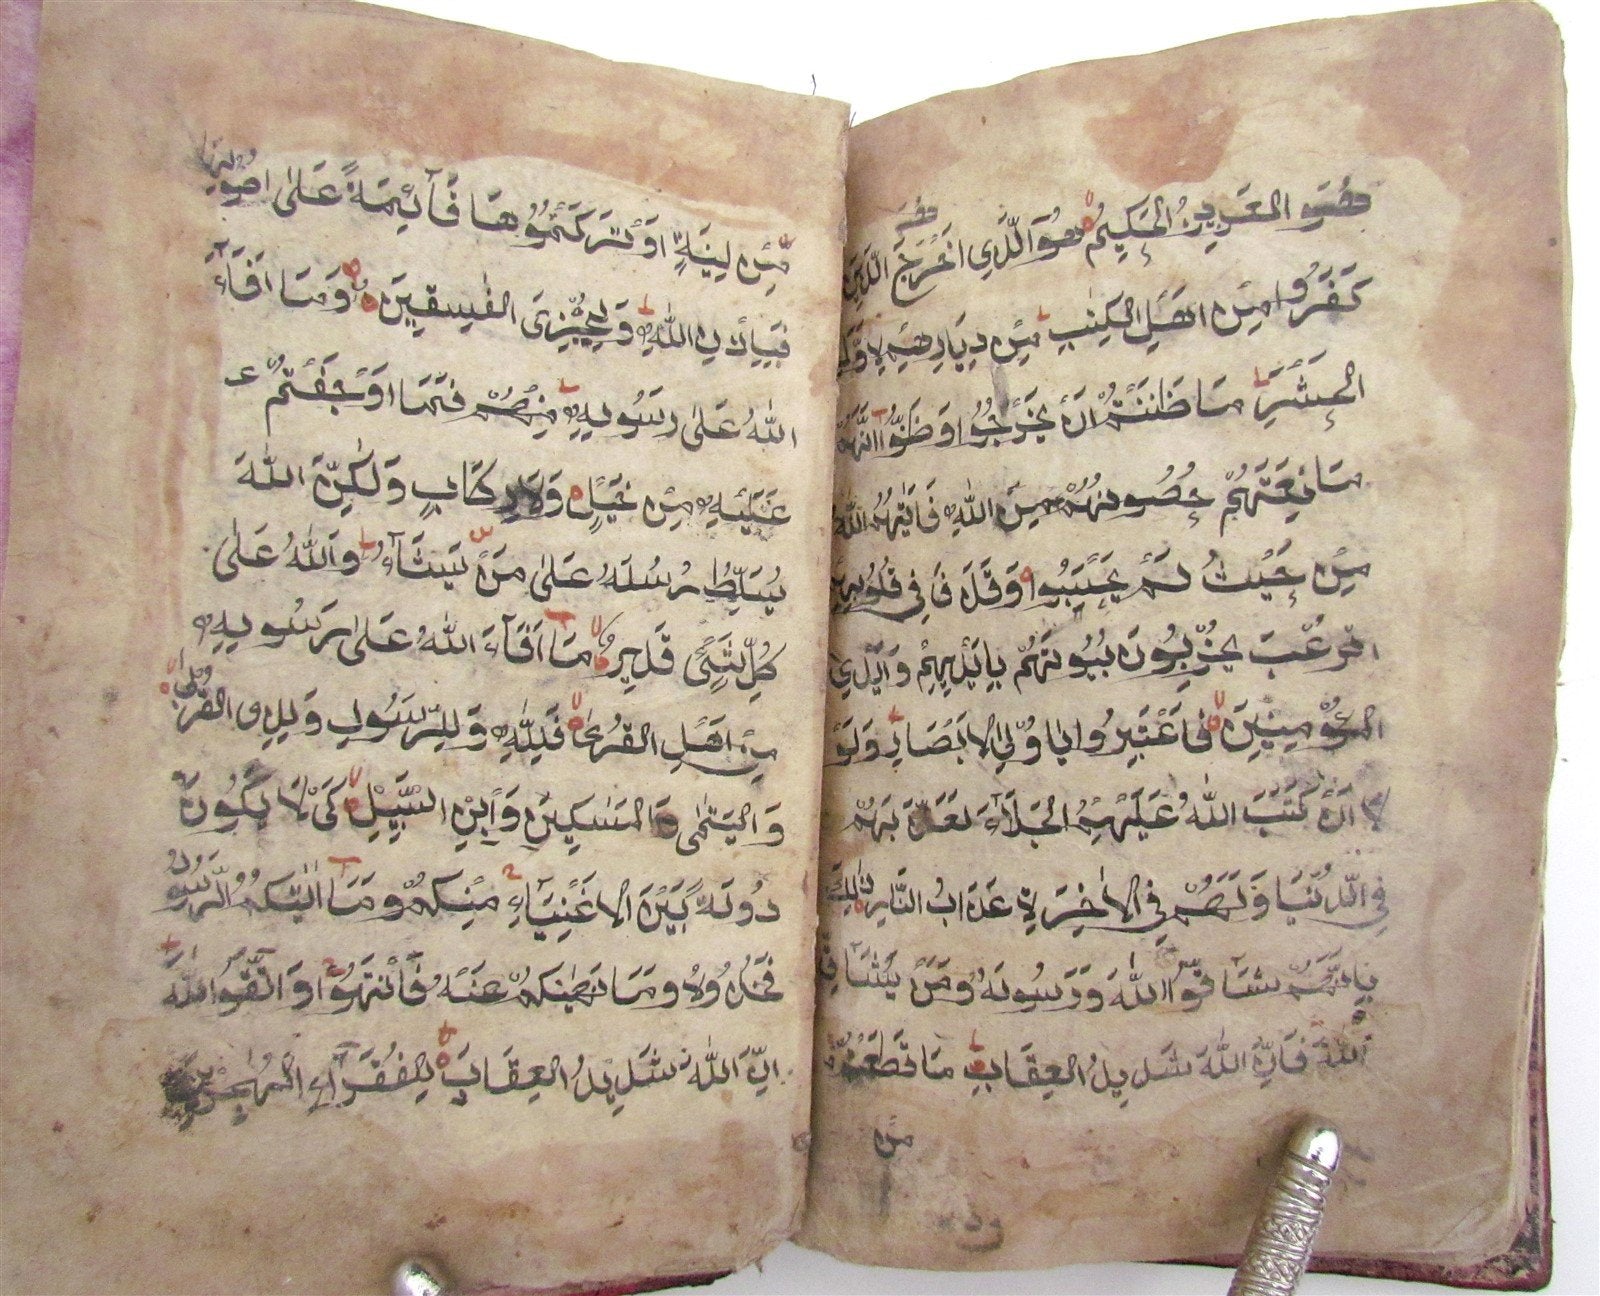 هُوَ الْعَزِيزُ الْحَكِيمُ هُوَ الَّذِي أَخْرَجَ الَّذِينَ
كَفَرُوا مِنْ اَهْلِ الْكِتٰبِ مِنْ دِيَارِهِمْ لِاَوَّلِ
الْحَشْرِ مَا ظَنَنْتُمْ اَنْ يَخْرُجُوا وَظَنُّوا اَنَّهُمْ
مَانِعَتُهُمْ حُصُونُهُمْ مِنَ اللّٰهِ فَاَتٰهُمُ اللّٰهُ
مِنْ حَيْثُ لَمْ يَحْتَسِبُوا وَقَذَفَ فِي قُلُوبِهِمُ
الرُّعْبَ يُخْرِبُونَ بُيُوتَهُمْ بِاَيْدِيهِمْ وَاَيْدِي
الْمُؤْمِنِينَ فَاعْتَبِرُوا يٰاُولِي الْاَبْصَارِ وَلَوْ
لَا اَنْ كَتَبَ اللّٰهُ عَلَيْهِمُ الْجَلَاءَ لَعَذَّبَهُمْ
فِي الدُّنْيَا وَلَهُمْ فِي الْاٰخِرَةِ عَذَابُ النَّارِ ذٰلِكَ
بِاَنَّهُمْ شَاقُّوا اللّٰهَ وَرَسُولَهُ وَمَنْ يُشَاقِّ
اللّٰهَ فَاِنَّ اللّٰهَ شَدِيدُ الْعِقَابِ مَا قَطَعْتُمْ
مِنْ
مِنْ لِينَةٍ اَوْ تَرَكْتُمُوهَا قَآئِمَةً عَلٰى اُصُولِهَا
فَبِاِذْنِ اللّٰهِ وَلِيُخْزِيَ الْفٰسِقِينَ وَمَا اَفَآءَ
اللّٰهُ عَلٰى رَسُولِهِ مِنْهُمْ فَمَا اَوْجَفْتُمْ
عَلَيْهِ مِنْ خَيْلٍ وَلَا رِكَابٍ وَلٰكِنَّ اللّٰهَ
يُسَلِّطُ رُسُلَهُ عَلٰى مَنْ يَشَآءُ وَاللّٰهُ عَلٰى
كُلِّ شَيْءٍ قَدِيرٌ مَا اَفَآءَ اللّٰهُ عَلٰى رَسُولِهِ
مِنْ اَهْلِ الْقُرٰى فَلِلّٰهِ وَلِلرَّسُولِ وَلِذِي الْقُرْبٰى
وَالْيَتٰمٰى وَالْمَسٰكِينِ وَابْنِ السَّبِيلِ كَيْ لَا يَكُونَ
دُولَةً بَيْنَ الْاَغْنِيَآءِ مِنْكُمْ وَمَا اٰتٰيكُمُ الرَّسُولُ
فَخُذُوهُ وَمَا نَهٰيكُمْ عَنْهُ فَانْتَهُوا وَاتَّقُوا اللّٰهَ
اِنَّ اللّٰهَ شَدِيدُ الْعِقَابِ لِلْفُقَرَآءِ الْمُهٰجِرِينَ